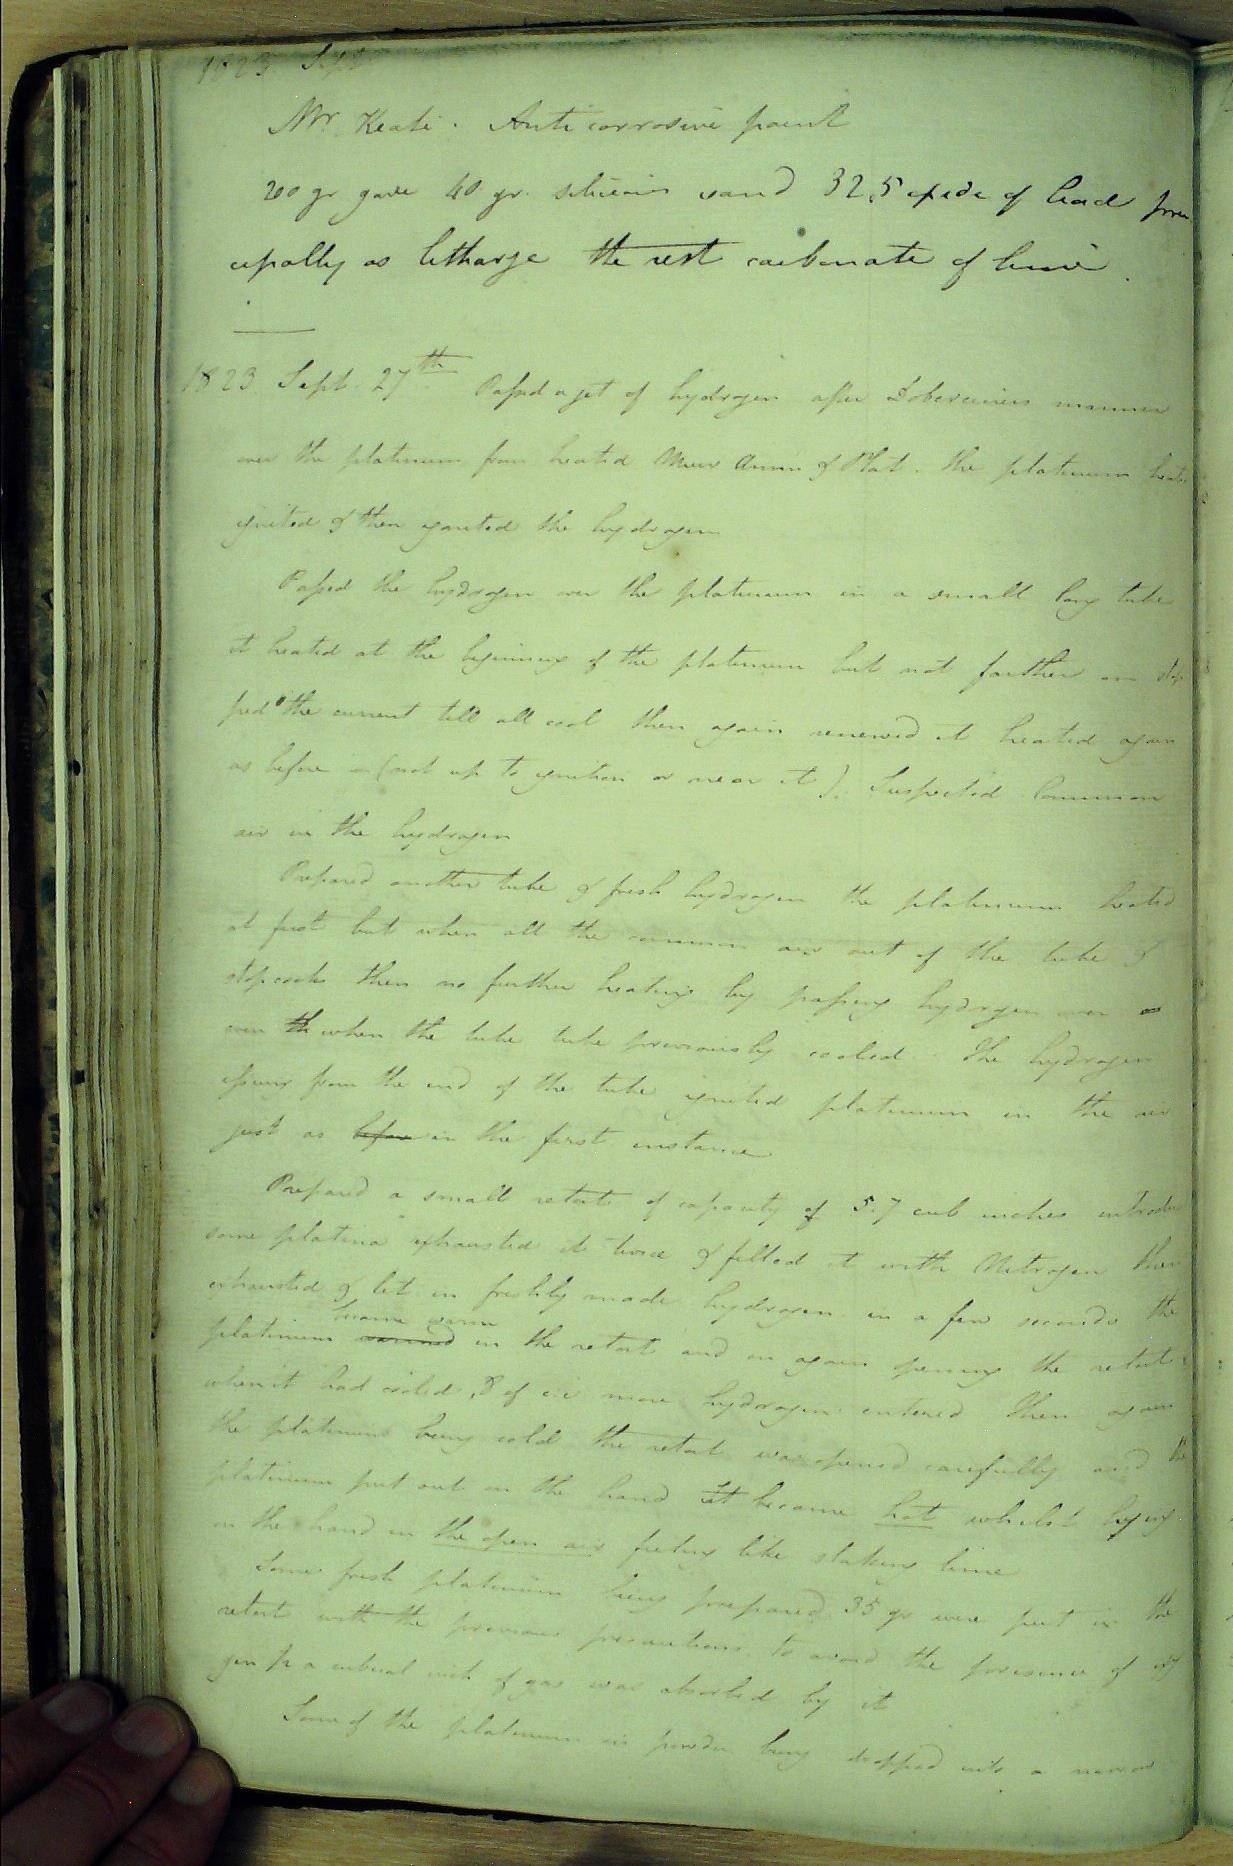 1823 Sept
Mr. Keate. Anti corrosive paint
200 gr gave 40 gr. siliceous sand 32.5 oxide of lead prin
cipally as litharge the rest carbonate of lime.
1823 Sept. 27th Passed a jet of hydrogen after Dobereiners manner
over the platinum from heated Mur Amm of Plat. the platinum heated
ignited & then ignited the hydrogen
Passed the hydrogen over the platinum in a small long tube
it heated at the beginning of the platinum but not farther on stop
ped the current till all cool then again renewed it heated again
as before - (not up to ignition or near it). Suspected Common
air in the hydrogen
Prepared another tube & fresh hydrogen the platinum heated
at first but when all the common air out of the tube &
stopcocks then no further heating by passing hydrogen over
even th when the tube tube previously cooled. The hydrogen
issuing from the end of the tube ignited platinum in the air
just as before in the first instance
Prepared a small retort of capacity of 5.7 cub inches introduced
some platina exhausted it twice & filled it with Nitrogen then
exhausted & let in freshly made hydrogen in a few seconds the
became warm
platinum warmed in the retort and on again opening the retort
when it had cooled .8 of c.i more hydrogen entered Then again
the platinum being cold the retort was opened carefully and the
platinum put out on the hand It became hot whilst lying
on the hand in the open air feeling like slaking lime
Some fresh platinum being prepared 35 gr were put in the
retort with the previous precautions to avoid the presence of oxy
gen a cubical inch of gas was absorbed by it
Some of the platinum in powder being dropped into a narrow